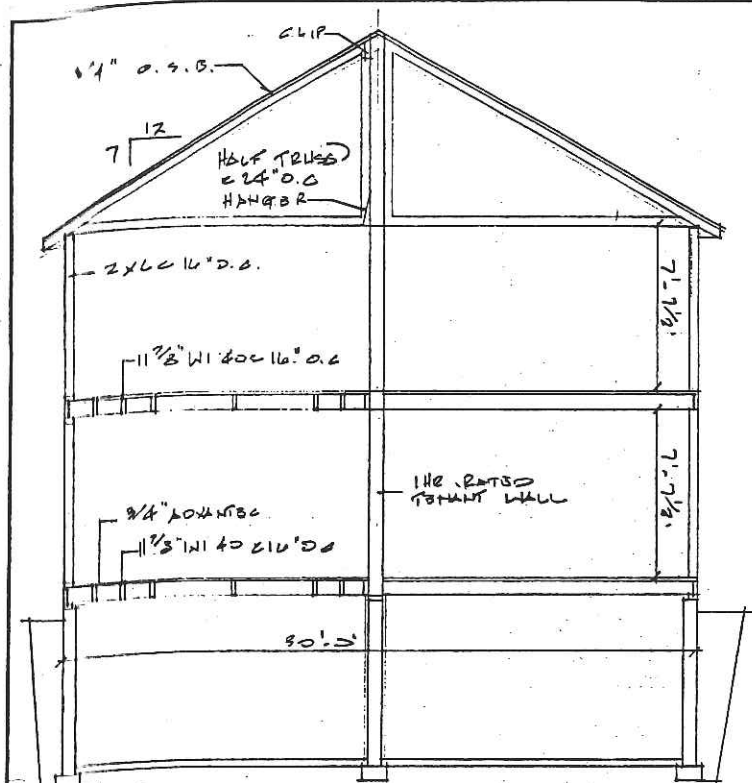 CLIP
O.S.B.
12
7
HALF TRUSS
@ 24" O.C
HANGER
2x6 @ 16" O.C.
7'-7 1/2"
11 7/8" WI 40 @ 16" O.C
1 HR. RATED
TENANT WALL
7'-7 1/2"
3/4" ADVANTEC
11 7/8" WI 40 @ 16" OC
30'-0"